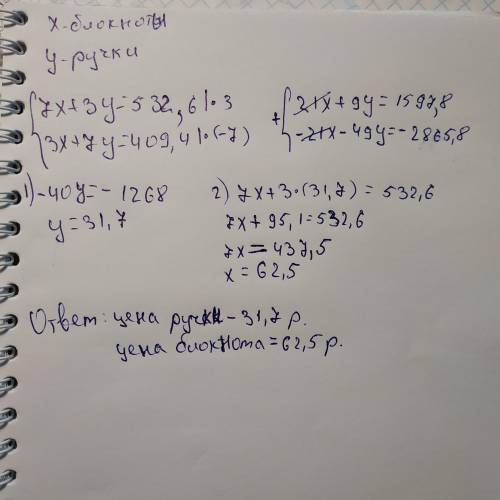 x-блокноты
y-ручки
7x+3y=532,6|·3
3x+7y=409,4|·(-7)
+ 21x+9y=1597,8
-21x-49y=-2865,8
1) -40y=-1268
y=31,7
2) 7x+3·(31,7)=532,6
7x+95,1=532,6
7x=437,5
x=62,5
Ответ: цена ручки-31,7 р.
цена блокнота=62,5 р.